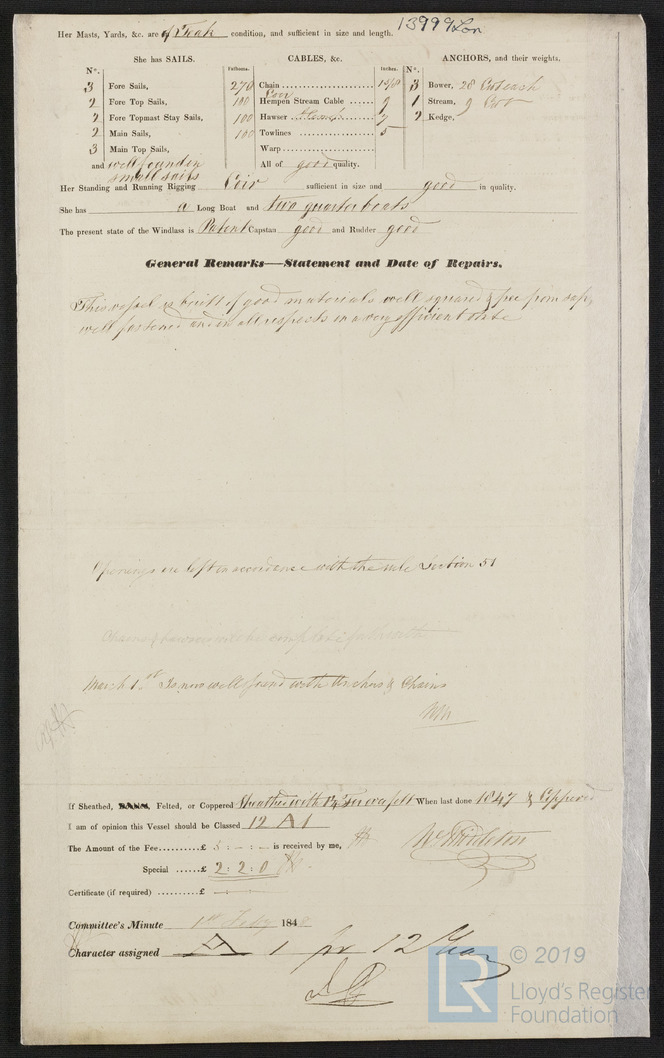 13999 Lon
Her Masts, Yards, &c. are of Teak condition, and sufficient in size and length.
She has SAILS.
CABLES, &c.
ANCHORS, and their weights.
N°.
Fathoms.
Inches.
N°.
3 Fore Sails,
2 Fore Top Sails,
2 Fore Topmast Stay Sails,
2 Main Sails,
3 Main Top Sails,
and well found in
small sails
Chain 270
Coir
Hempen Stream Cable 100 9
Hawser 100 7
Towlines 100 5
Warp
All of good quality.
3 Bower, 28
1 Stream, 9 Cwt
2 Kedge,
Her Standing and Running Rigging Coir sufficient in size and good in quality.
She has a Long Boat and two quarter boats
The present state of the Windlass is Patent Capstan good and Rudder good
General Remarks—Statement and Date of Repairs.
This vessel is built of good materials well squared & free from sap,
well fastened and in all respects in a very efficient state
Openings are left in accordance with the rule Section 51
Chains & hawsers to be complete
March 1st Is now well found with Anchors & Chains
WM
If Sheathed, Doubled, Felted, or Coppered Sheathed with felt When last done 1847 & Coppered
I am of opinion this Vessel should be Classed 12 A1
The Amount of the Fee..........£ 5 : - : - is received by me,
W Middleton
Special ......£ 2 : 2 : 0
Certificate (if required) ..........£ - : -
Committee's Minute 1st Feby 184
Character assigned A 1 for 12 Years
© 2019
LR
Lloyd's Register
Foundation